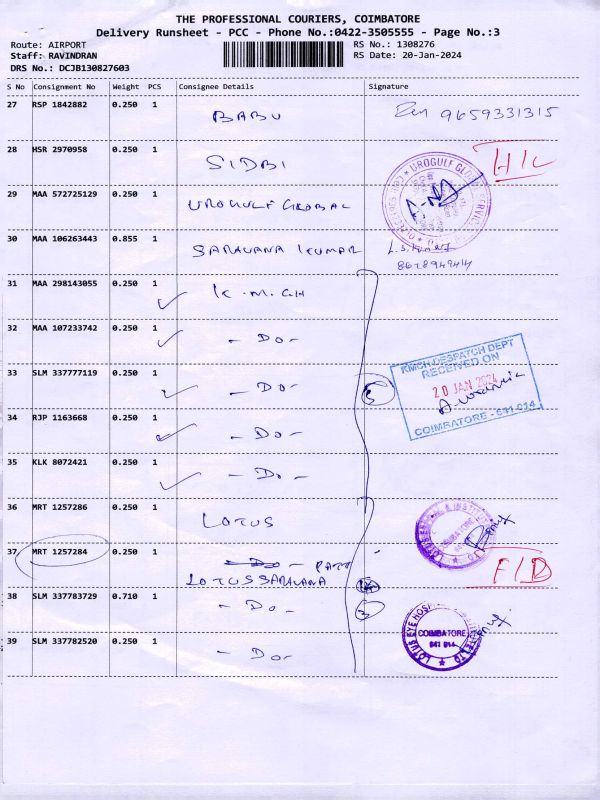 THE PROFESSIONAL COURIERS, COIMBATORE
Delivery Runsheet - PCC - Phone No.:0422-3505555 - Page No.:3
Route: AIRPORT RS No.: 1308276
Staff: RAVINDRAN RS Date: 20-Jan-2024
DRS No.: DCJB130827603
S No Consignment No Weight PCS Consignee Details Signature
27 RSP 1842882 0.250 1 BABU 9659331315
28 HSR 2970958 0.250 1 SIDBI H/L
29 MAA 572725129 0.250 1 UROGULF GLOBAL
UROGULF GLOBAL
30 MAA 106263443 0.855 1 SARAVANA KUMAR
31 MAA 298143055 0.250 1 K.M.C.H
32 MAA 107233742 0.250 1 - DO -
33 SLM 337777119 0.250 1 - DO - 5
KMCH DESPATCH DEPT
RECEIVED ON
20 JAN 2024
COIMBATORE - 641 014
34 RJP 1163668 0.250 1 - DO -
35 KLK 8072421 0.250 1 - DO -
36 MRT 1257286 0.250 1 LOTUS
37 MRT 1257284 0.250 1
LOTUS SARAVANA
38 SLM 337783729 0.710 1 - DO - 3
LOTUS EYE HOSPITAL
COIMBATORE
641 014
39 SLM 337782520 0.250 1 - DO -